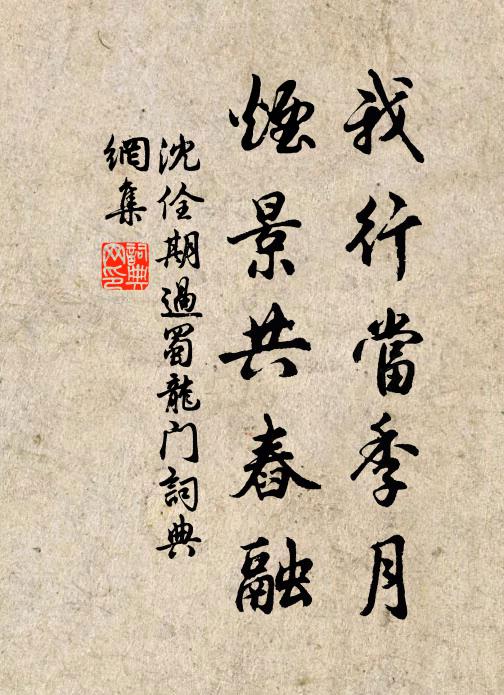 我行當季月
煙景共舂融
沈佺期過蜀龍门詞典
網集
詞典
网印